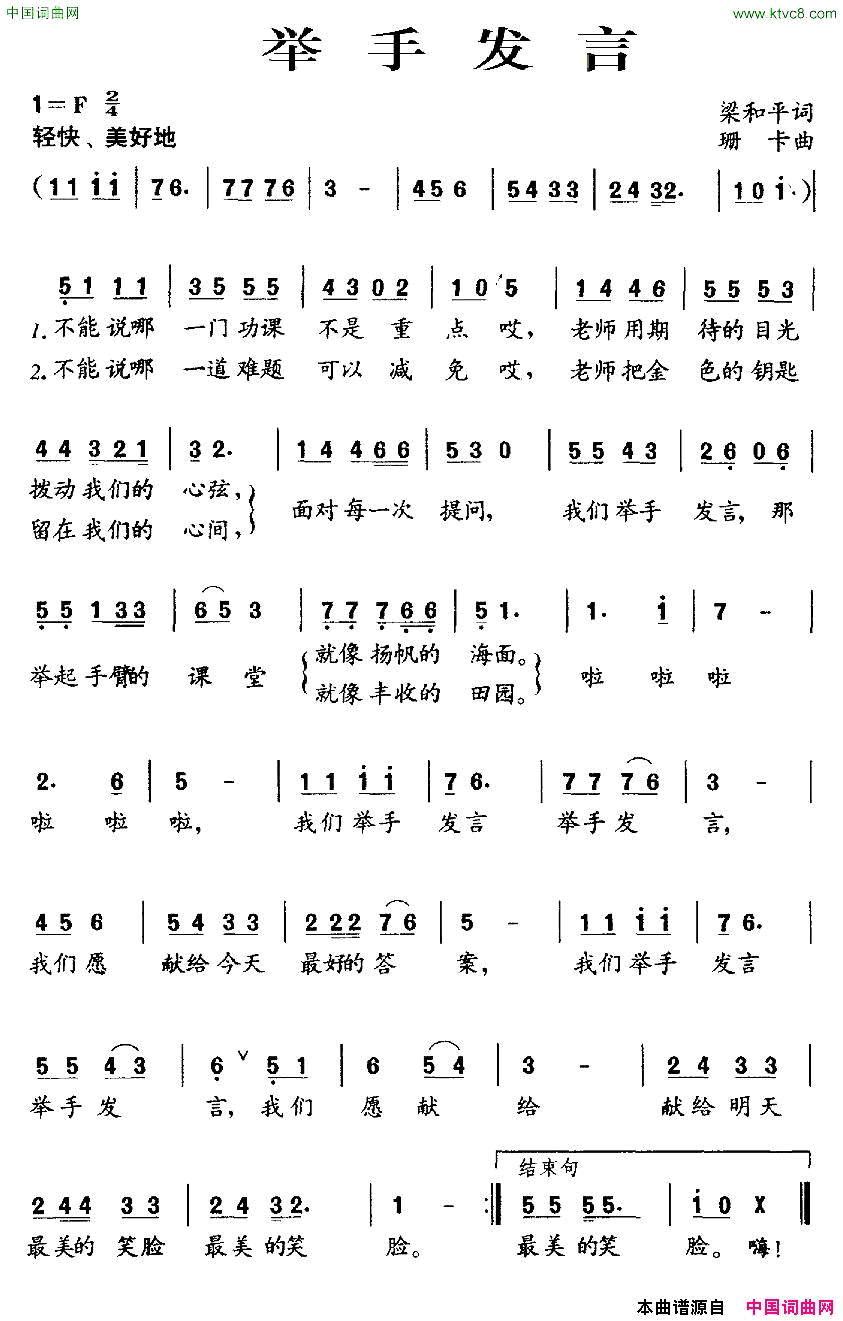 中国词曲网 www.ktvc8.com
举手发言
1=F 2/4 梁和平词
轻快、美好地 珊卡曲
(11 i i | 76. | 77 76 | 3 - | 45 6 | 54 33 | 24 32. | 10 i.)|
51 11 | 35 55 | 43 02 | 10 5 | 14 46 | 55 53 |
1.不能说哪 一门功课 不是重点哎, 老师用期待的目光
2.不能说哪 一道难题 可以减免哎, 老师把金色的钥匙
44 321 | 32. | 14 466 | 53 0 | 55 43 | 26 06 |
拨动我们的 心弦,
面对每一次 提问, 我们举手 发言, 那
留在我们的 心间,
55 133 | 65 3 | 77 766 | 51. | 1. i | 7 - |
就像扬帆的 海面。
举起手臂的 课堂 啦 啦 啦
就像丰收的 田园。
2. 6 | 5 - | 11 i i | 76. | 77 76 | 3 - |
啦 啦 啦, 我们举手 发言 举手发 言,
45 6 | 54 33 | 222 76 | 5 - | 11 i i | 76. |
我们愿 献给今天 最好的答 案, 我们举手 发言
55 43 | 6 ∨ 51 | 6 54 | 3 - | 24 33 |
举手发 言,我们 愿献 给 献给明天
结束句
244 33 | 24 32. | 1 - :| 55 55. | i 0 X |
最美的笑脸 最美的笑 脸。 最美的笑 脸。嗨!
本曲谱源自 中国词曲网